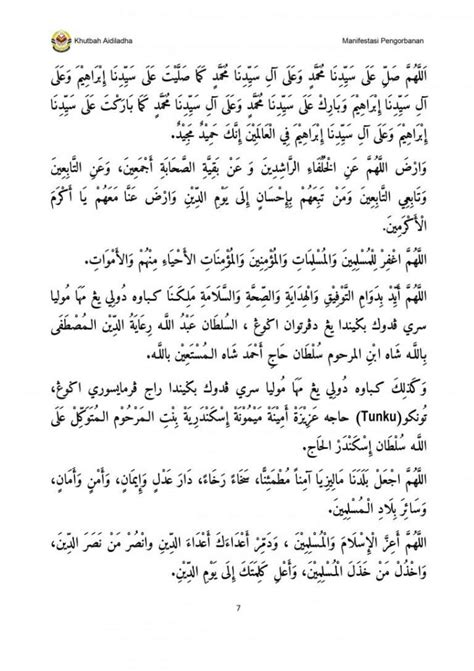 Khutbah Aidiladha
Manifestasi Pengorbanan
اَللّٰهُمَّ صَلِّ عَلَى سَيِّدِنَا مُحَمَّدٍ وَعَلَى آلِ سَيِّدِنَا مُحَمَّدٍ كَمَا صَلَّيْتَ عَلَى سَيِّدِنَا إِبْرَاهِيْمَ وَعَلَى
آلِ سَيِّدِنَا إِبْرَاهِيْمَ وَبَارِكْ عَلَى سَيِّدِنَا مُحَمَّدٍ وَعَلَى آلِ سَيِّدِنَا مُحَمَّدٍ كَمَا بَارَكْتَ عَلَى سَيِّدِنَا
إِبْرَاهِيْمَ وَعَلَى آلِ سَيِّدِنَا إِبْرَاهِيْمَ فِي الْعَالَمِيْنَ إِنَّكَ حَمِيْدٌ مَجِيْدٌ.
وَارْضَ اللّٰهُمَّ عَنِ الْخُلَفَاءِ الرَّاشِدِيْنَ وَ عَنْ بَقِيَّةِ الصَّحَابَةِ أَجْمَعِيْنَ، وَعَنِ التَّابِعِيْنَ
وَتَابِعِي التَّابِعِيْنَ وَمَنْ تَبِعَهُمْ بِإِحْسَانٍ إِلَى يَوْمِ الدِّيْنِ وَارْضَ عَنَّا مَعَهُمْ يَا أَكْرَمَ
الْأَكْرَمِيْنَ.
اَللّٰهُمَّ اغْفِرْ لِلْمُسْلِمِيْنَ وَالْمُسْلِمَاتِ وَالْمُؤْمِنِيْنَ وَالْمُؤْمِنَاتِ الْأَحْيَاءِ مِنْهُمْ وَالْأَمْوَاتِ.
اَللّٰهُمَّ أَيِّدْ بِدَوَامِ التَّوْفِيْقِ وَالْهِدَايَةِ وَالصِّحَّةِ وَالسَّلَامَةِ مَلِكَنَا كباوه دولي يڠ مها موليا
سري ڤدوك بݢيندا يڠ دڤرتوان اݢوڠ ، السُّلْطَان عَبْدُ اللّٰه رِعَايَةُ الدِّيْنِ الْمُصْطَفَى
بِاللّٰه شَاه ابْنِ المرحوم سُلْطَان حَاجِ أَحْمَد شَاه الـمُسْتَعِيْنِ بِاللّٰه.
وَكَذٰلِكَ كباوه دولي يڠ مها موليا سري ڤدوك بݢيندا راج ڤرمايسوري اݢوڠ،
تونكو(Tunku) حاجه عَزِيْزَةْ أَمِيْنَة مَيْمُوْنَةْ إِسْكَنْدَرِيَّةْ بِنْتِ الـمَرْحُوْم الـمُتَوَكِّلْ عَلَى
اللّٰه سُلْطَان إِسْكَنْدَرْ الْحَاج.
اَللّٰهُمَّ اجْعَلْ بَلَدَنَا مَالِيْزِيَا آمِنًا مُطْمَئِنًّا، سَخَاءً رَخَاءً، دَارَ عَدْلٍ وَإِيْمَانٍ، وَأَمْنٍ وَأَمَانٍ،
وَسَائِرَ بِلَادِ الْمُسْلِمِيْنَ.
اَللّٰهُمَّ أَعِزَّ الْإِسْلَامَ وَالْمُسْلِمِيْنَ ، وَدَمِّرْ أَعْدَاءَكَ أَعْدَاءَ الدِّيْنِ وانْصُرْ مَنْ نَصَرَ الدِّيْنَ،
وَاخْذُلْ مَنْ خَذَلَ الْمُسْلِمِيْنَ، وَأَعْلِ كَلِمَتَكَ إِلَى يَوْمِ الدِّيْنِ.
7